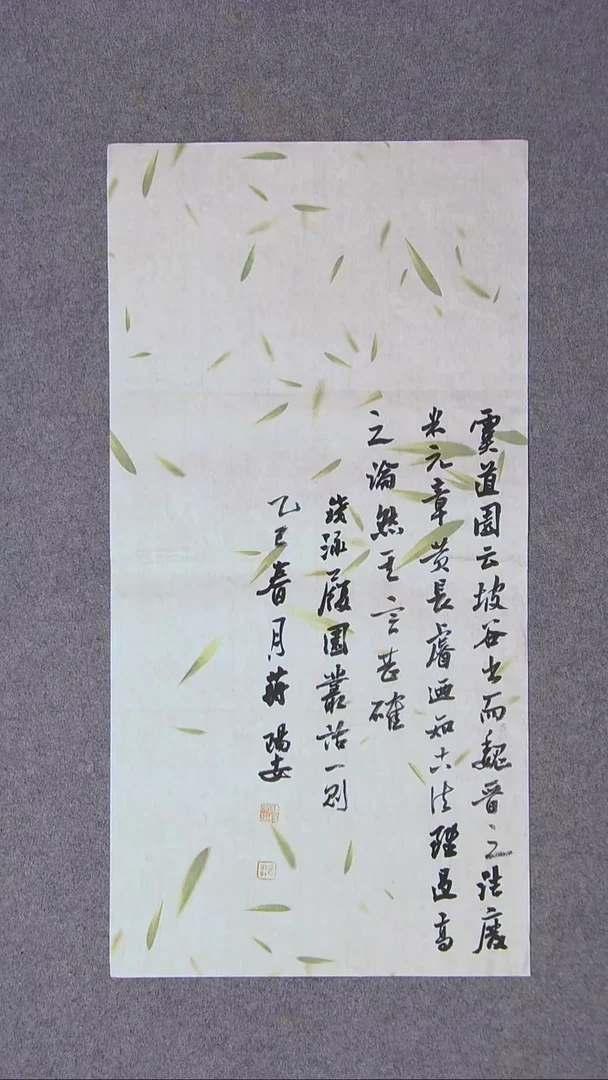 虞道園云坡谷出而魏晉之法廢
米元章黄長睿迺知古法雖過高
之論然其言甚確
錢泳履園叢話一則
乙巳春月蔣陽安